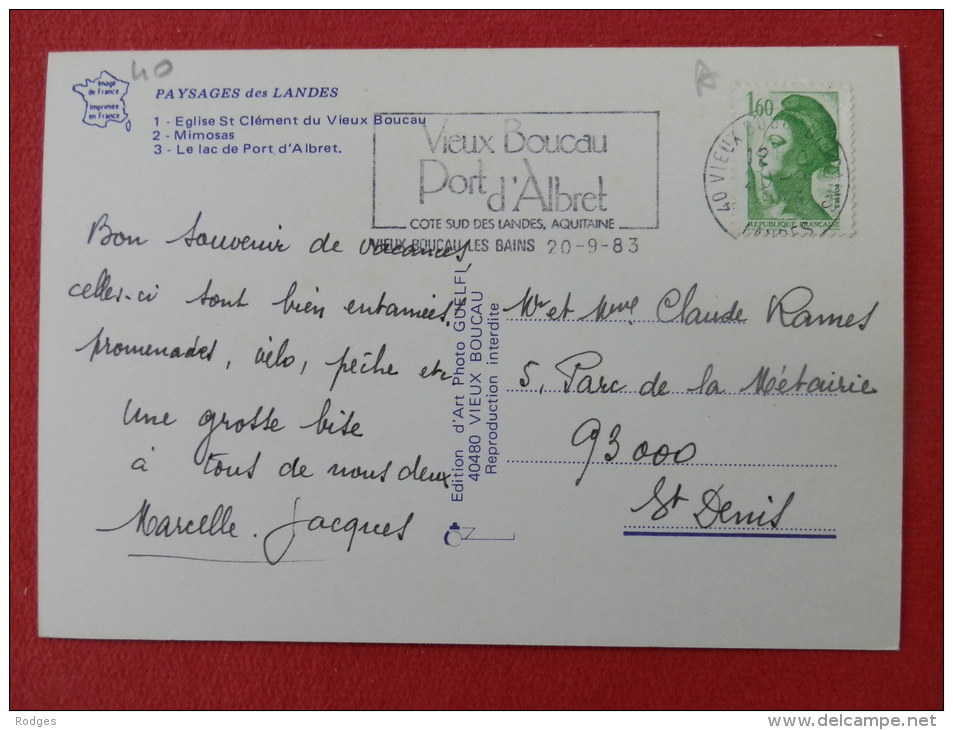 40
Image
de France
Imprimée
en France
PAYSAGES des LANDES
1 - Eglise St Clément du Vieux Boucau
2 - Mimosas
3 - Le lac de Port d'Albret.
Vieux Boucau
Port
d'Albret
COTE SUD DES LANDES, AQUITAINE
VIEUX BOUCAU LES BAINS 20-9-83
1,60
REPUBLIQUE FRANÇAISE
40 VIEUX BOUCAU
LANDES
Bon souvenir de vacances,
celles-ci sont bien entamées.
promenades, vélo, pêche etc
Une grosse bise
à tous de nous deux
Marcelle. Jacques
Edition d'Art Photo GUELFI,
40480 VIEUX BOUCAU
Reproduction interdite
Mr et Mme Claude Rames
5, Parc de la Métairie
93000
St Denis
Rodges
www.delcampe.net